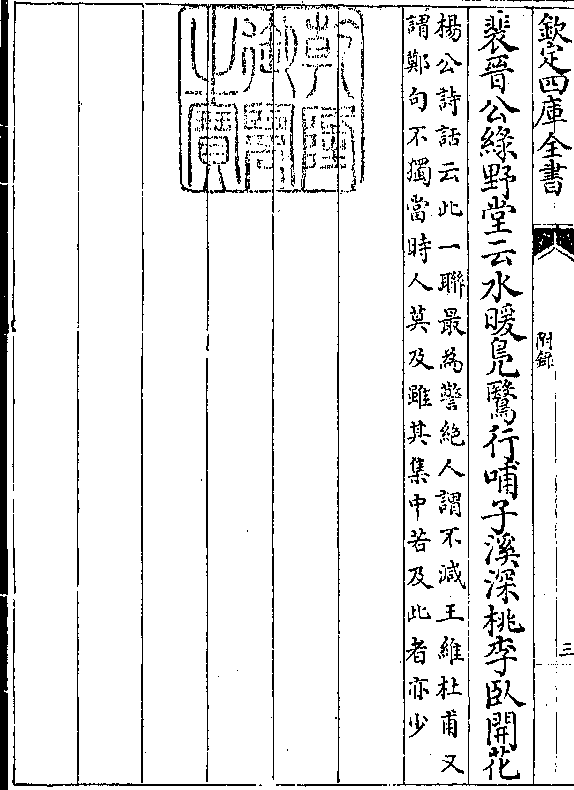 欽定四庫全書
附録
三
裴晉公綠野堂云水暖鳬鷖行哺子溪深桃李臥開花
楊公詩話云此一聯最為警絶人謂不减王維杜甫又
謂鄭句不獨當時人莫及雖其集中若及此者亦少
乾隆
御覽
之寶